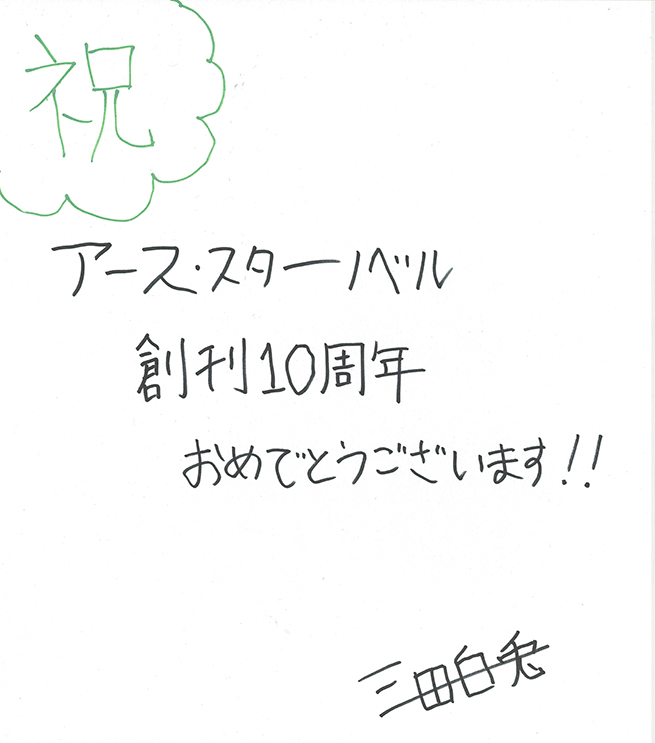 祝
アース・スターノベル
創刊10周年
おめでとうございます!!
三田白兎